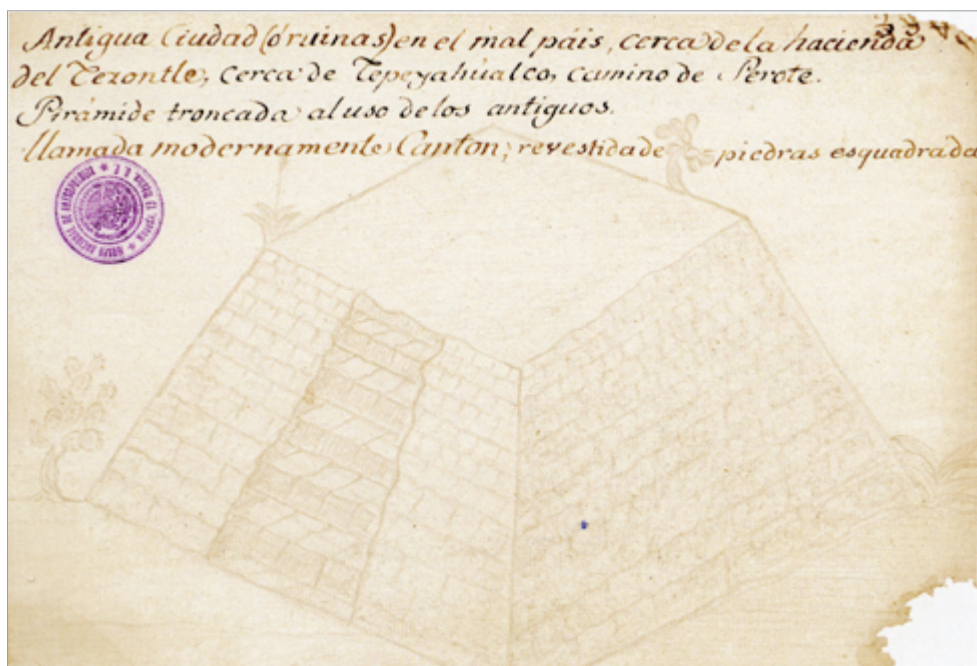 Antigua Ciudad (ó ruinas) en el mal páis, cerca de la hacienda
del Tezontle, cerca de Tepeyahúalco, camino de Perote.
Pirámide troncada al uso de los antiguos.
llamada modernamente Canton; revestida de = piedras esquadrada